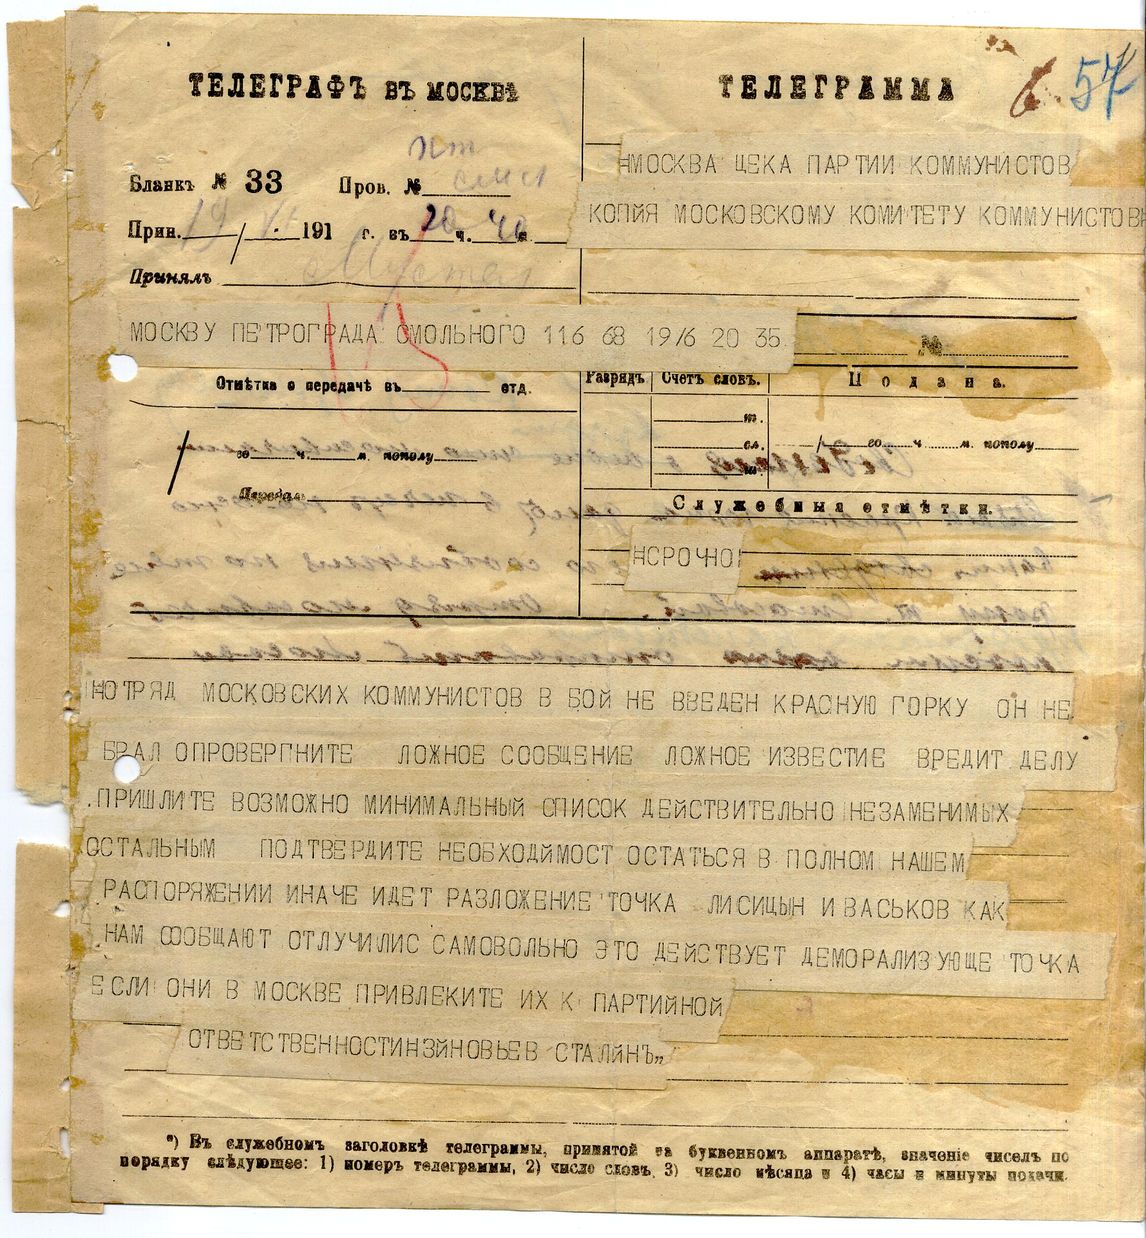 ТЕЛЕГРАФЪ ВЪ МОСКВѢ
ТЕЛЕГРАММА
6 57
НМОСКВА ЦЕКА ПАРТИИ КОММУНИСТОВ
КОПЙЯ МОСКОВСКОМУ КОМИТЕТУ КОММУНИСТОВ
Бланкъ № 33 Пров. №
Прин. 19/VI 191 г. въ 20 ч. 40 м.
Принялъ
МОСКВУ ПЕТРОГРАДА СМОЛЬНОГО 116 68 19/6 20 35.
№
Отмѣтка о передачѣ въ отд.
Разрядъ Счетъ словъ. Подана.
го ч. м. пополу
Передал
т.
сл.
/ го ч. м. пополу
Служебныя отмѣтки.
НСРОЧНО
НОТРЯД МОСКОВСКИХ КОММУНИСТОВ В БОЙ НЕ ВВЕДЕН КРАСНУЮ ГОРКУ ОН НЕ
БРАЛ ОПРОВЕРГНИТЕ ЛОЖНОЕ СООБЩЕНИЕ ЛОЖНОЕ ИЗВЕСТИЕ ВРЕДИТ ДЕЛУ
.ПРИШЛИТЕ ВОЗМОЖНО МИНИМАЛЬНЫЙ СПИСОК ДЕЙСТВИТЕЛЬНО НЕЗАМЕНИМЫХ
ОСТАЛЬНЫМ ПОДТВЕРДИТЕ НЕОБХОДЙМОСТ ОСТАТЬСЯ В ПОЛНОМ НАШЕМ
РАСПОРЯЖЕНИИ ИНАЧЕ ИДЕТ РАЗЛОЖЕНИЕ ТОЧКА ЛИСИЦЫН И ВАСЬКОВ КАК
НАМ СООБЩАЮТ ОТЛУЧИЛИС САМОВОЛЬНО ЭТО ДЕЙСТВУЕТ ДЕМОРАЛИЗУЮЩЕ ТОЧКА
ЕСЛИ ОНИ В МОСКВЕ ПРИВЛЕКИТЕ ИХ К ПАРТИЙНОЙ
ОТВЕТСТВЕННОСТИНЗЙНОВЬЕВ СТАЛЙНЪ,,
*) Въ служебномъ заголовкѣ телеграммы, принятой на буквенномъ аппаратѣ, значеніе чиселъ по
порядку слѣдующее: 1) номеръ телеграммы, 2) число словъ, 3) число мѣсяца и 4) часы и минуты подачи.